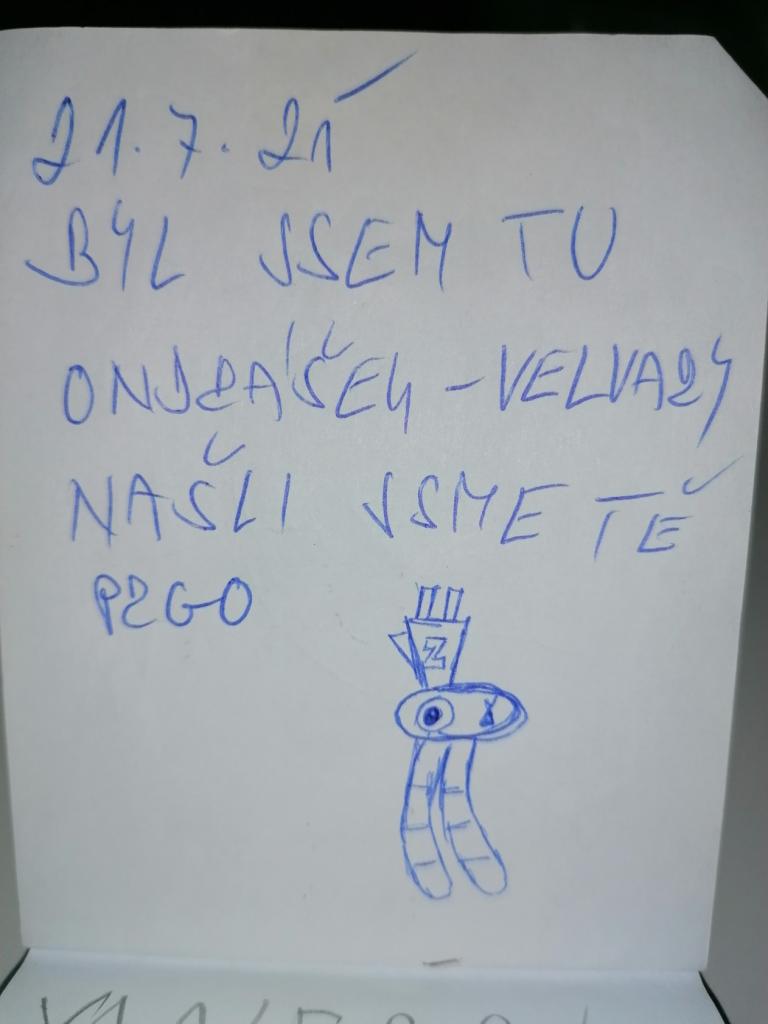 21.7.21
BÝL JSEM TU
ONDRÁŠEK - VELVARY
NAŠLI JSME TĚ
Z